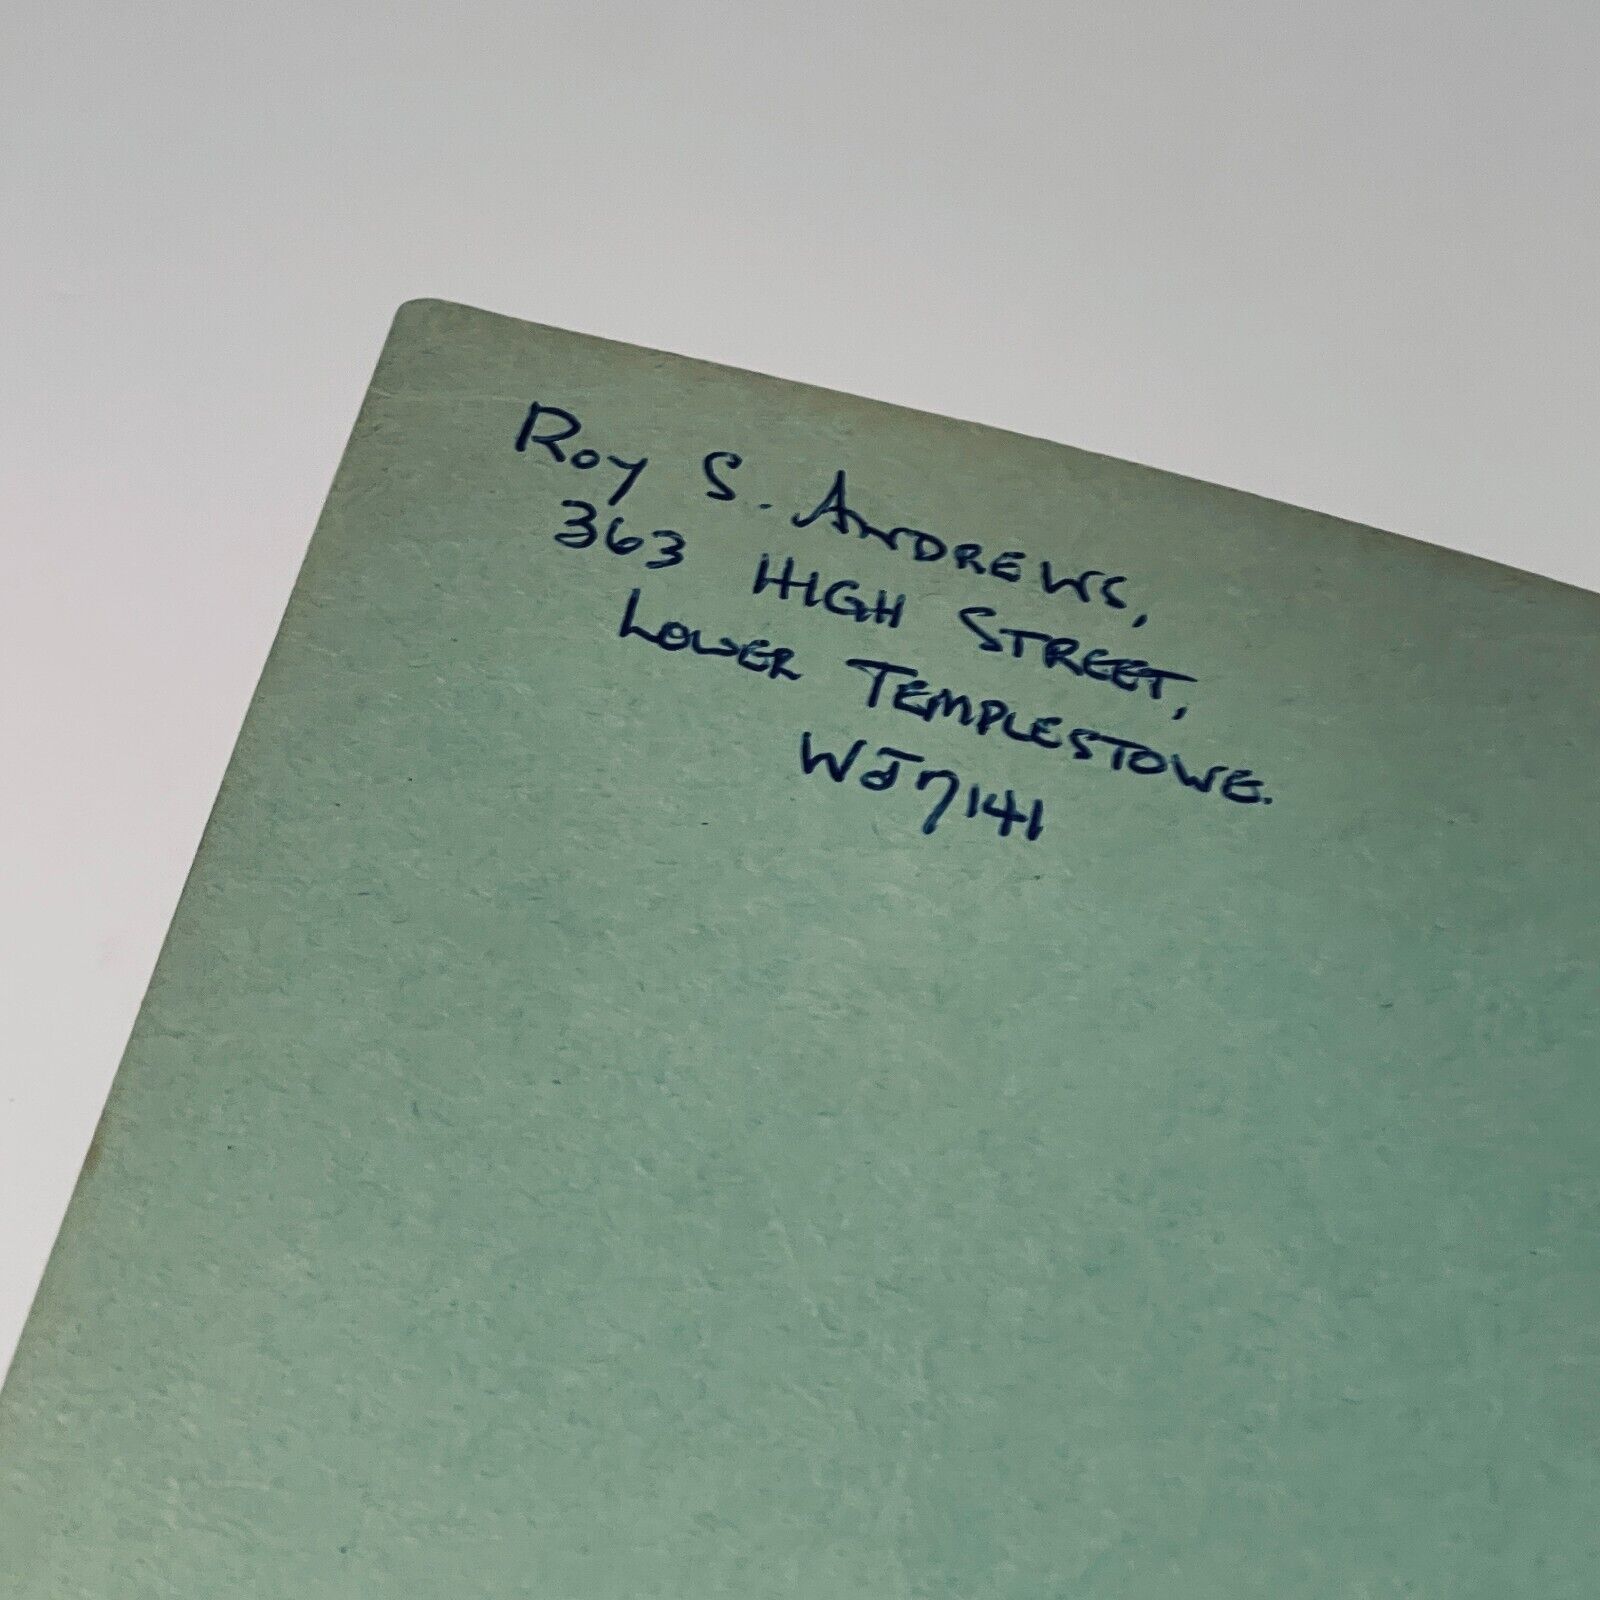 Roy S. Andrews,
363 High Street,
Lower Templestowe.
WJ7141